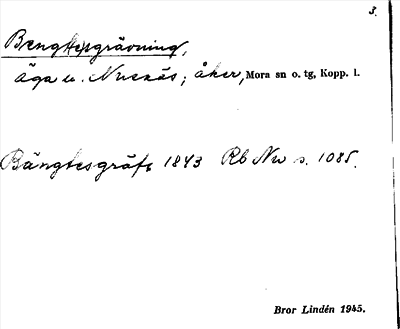 3.
Bengtesgrävning,
äga u. Nusnäs; åker, Mora sn o. tg, Kopp. l.
Bängtesgräft 1843 Rb Nu s. 1085.
Bror Lindén 1945.